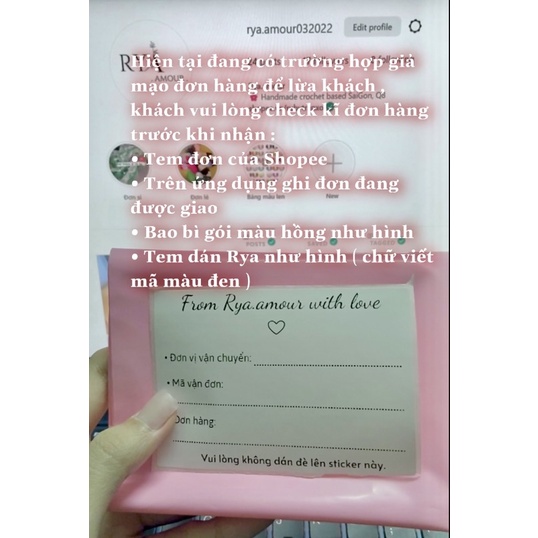 rya.amour032022
Edit profile
RYA
AMOUR
Hiện tại đang có trường hợp giả
mạo đơn hàng để lừa khách ,
Handmade crochet based SaiGon, Q8
khách vui lòng check kĩ đơn hàng
trước khi nhận :
• Tem đơn của Shopee
• Trên ứng dụng ghi đơn đang
được giao
Đơn sỉ
Đơn lẻ
Bảng màu len
New
• Bao bì gói màu hồng như hình
POSTS
SAVED
TAGGED
• Tem dán Rya như hình ( chữ viết
mã màu đen )
From Rya.amour with love
• Đơn vị vận chuyển:
• Mã vận đơn:
Đơn hàng:
Vui lòng không dán đè lên sticker này.